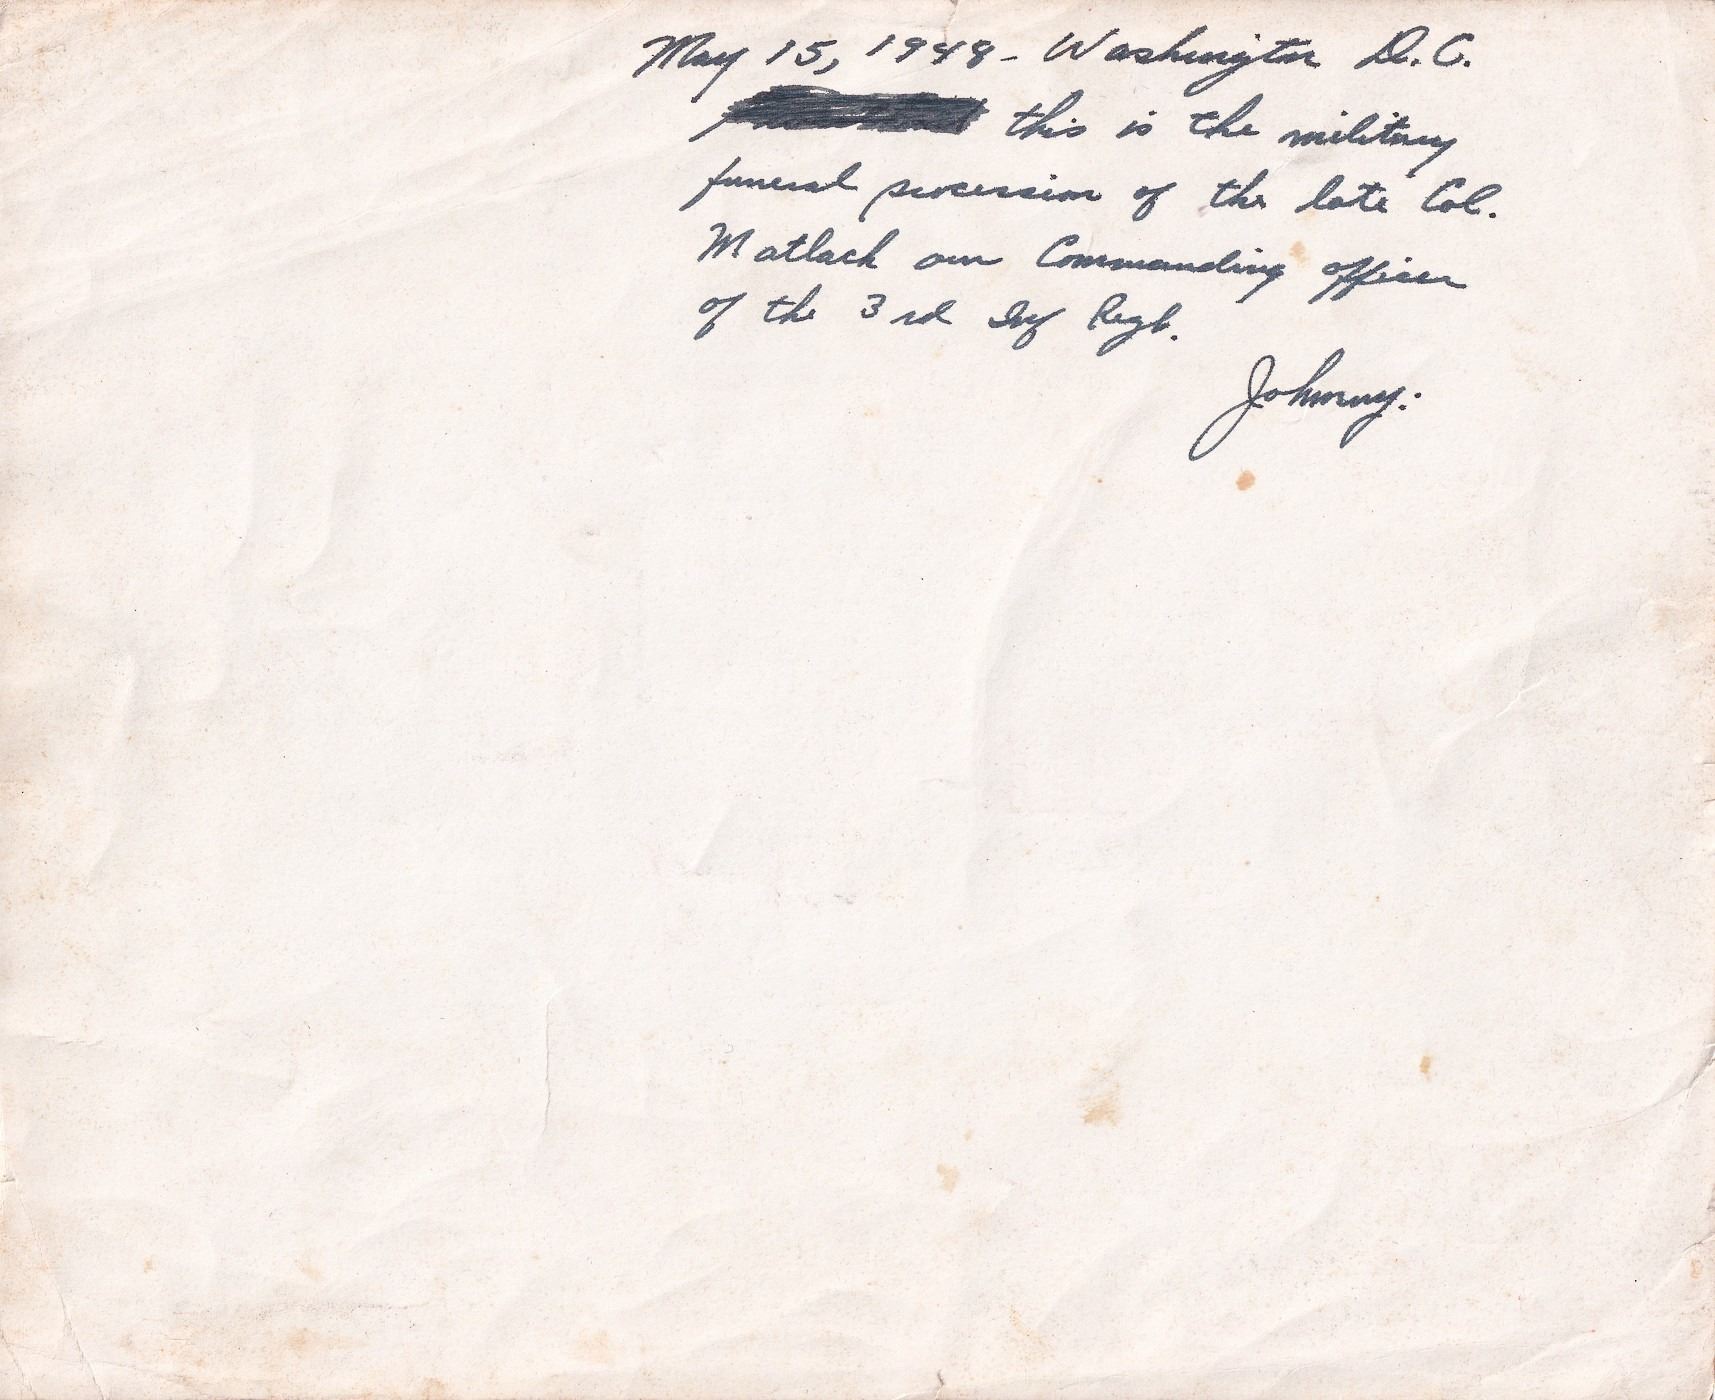 May 15, 1948 - Washington D.C.
this is the military
funeral procession of the late Col.
Matlack our Commanding officer
of the 3rd Inf Regt.
Johnny: